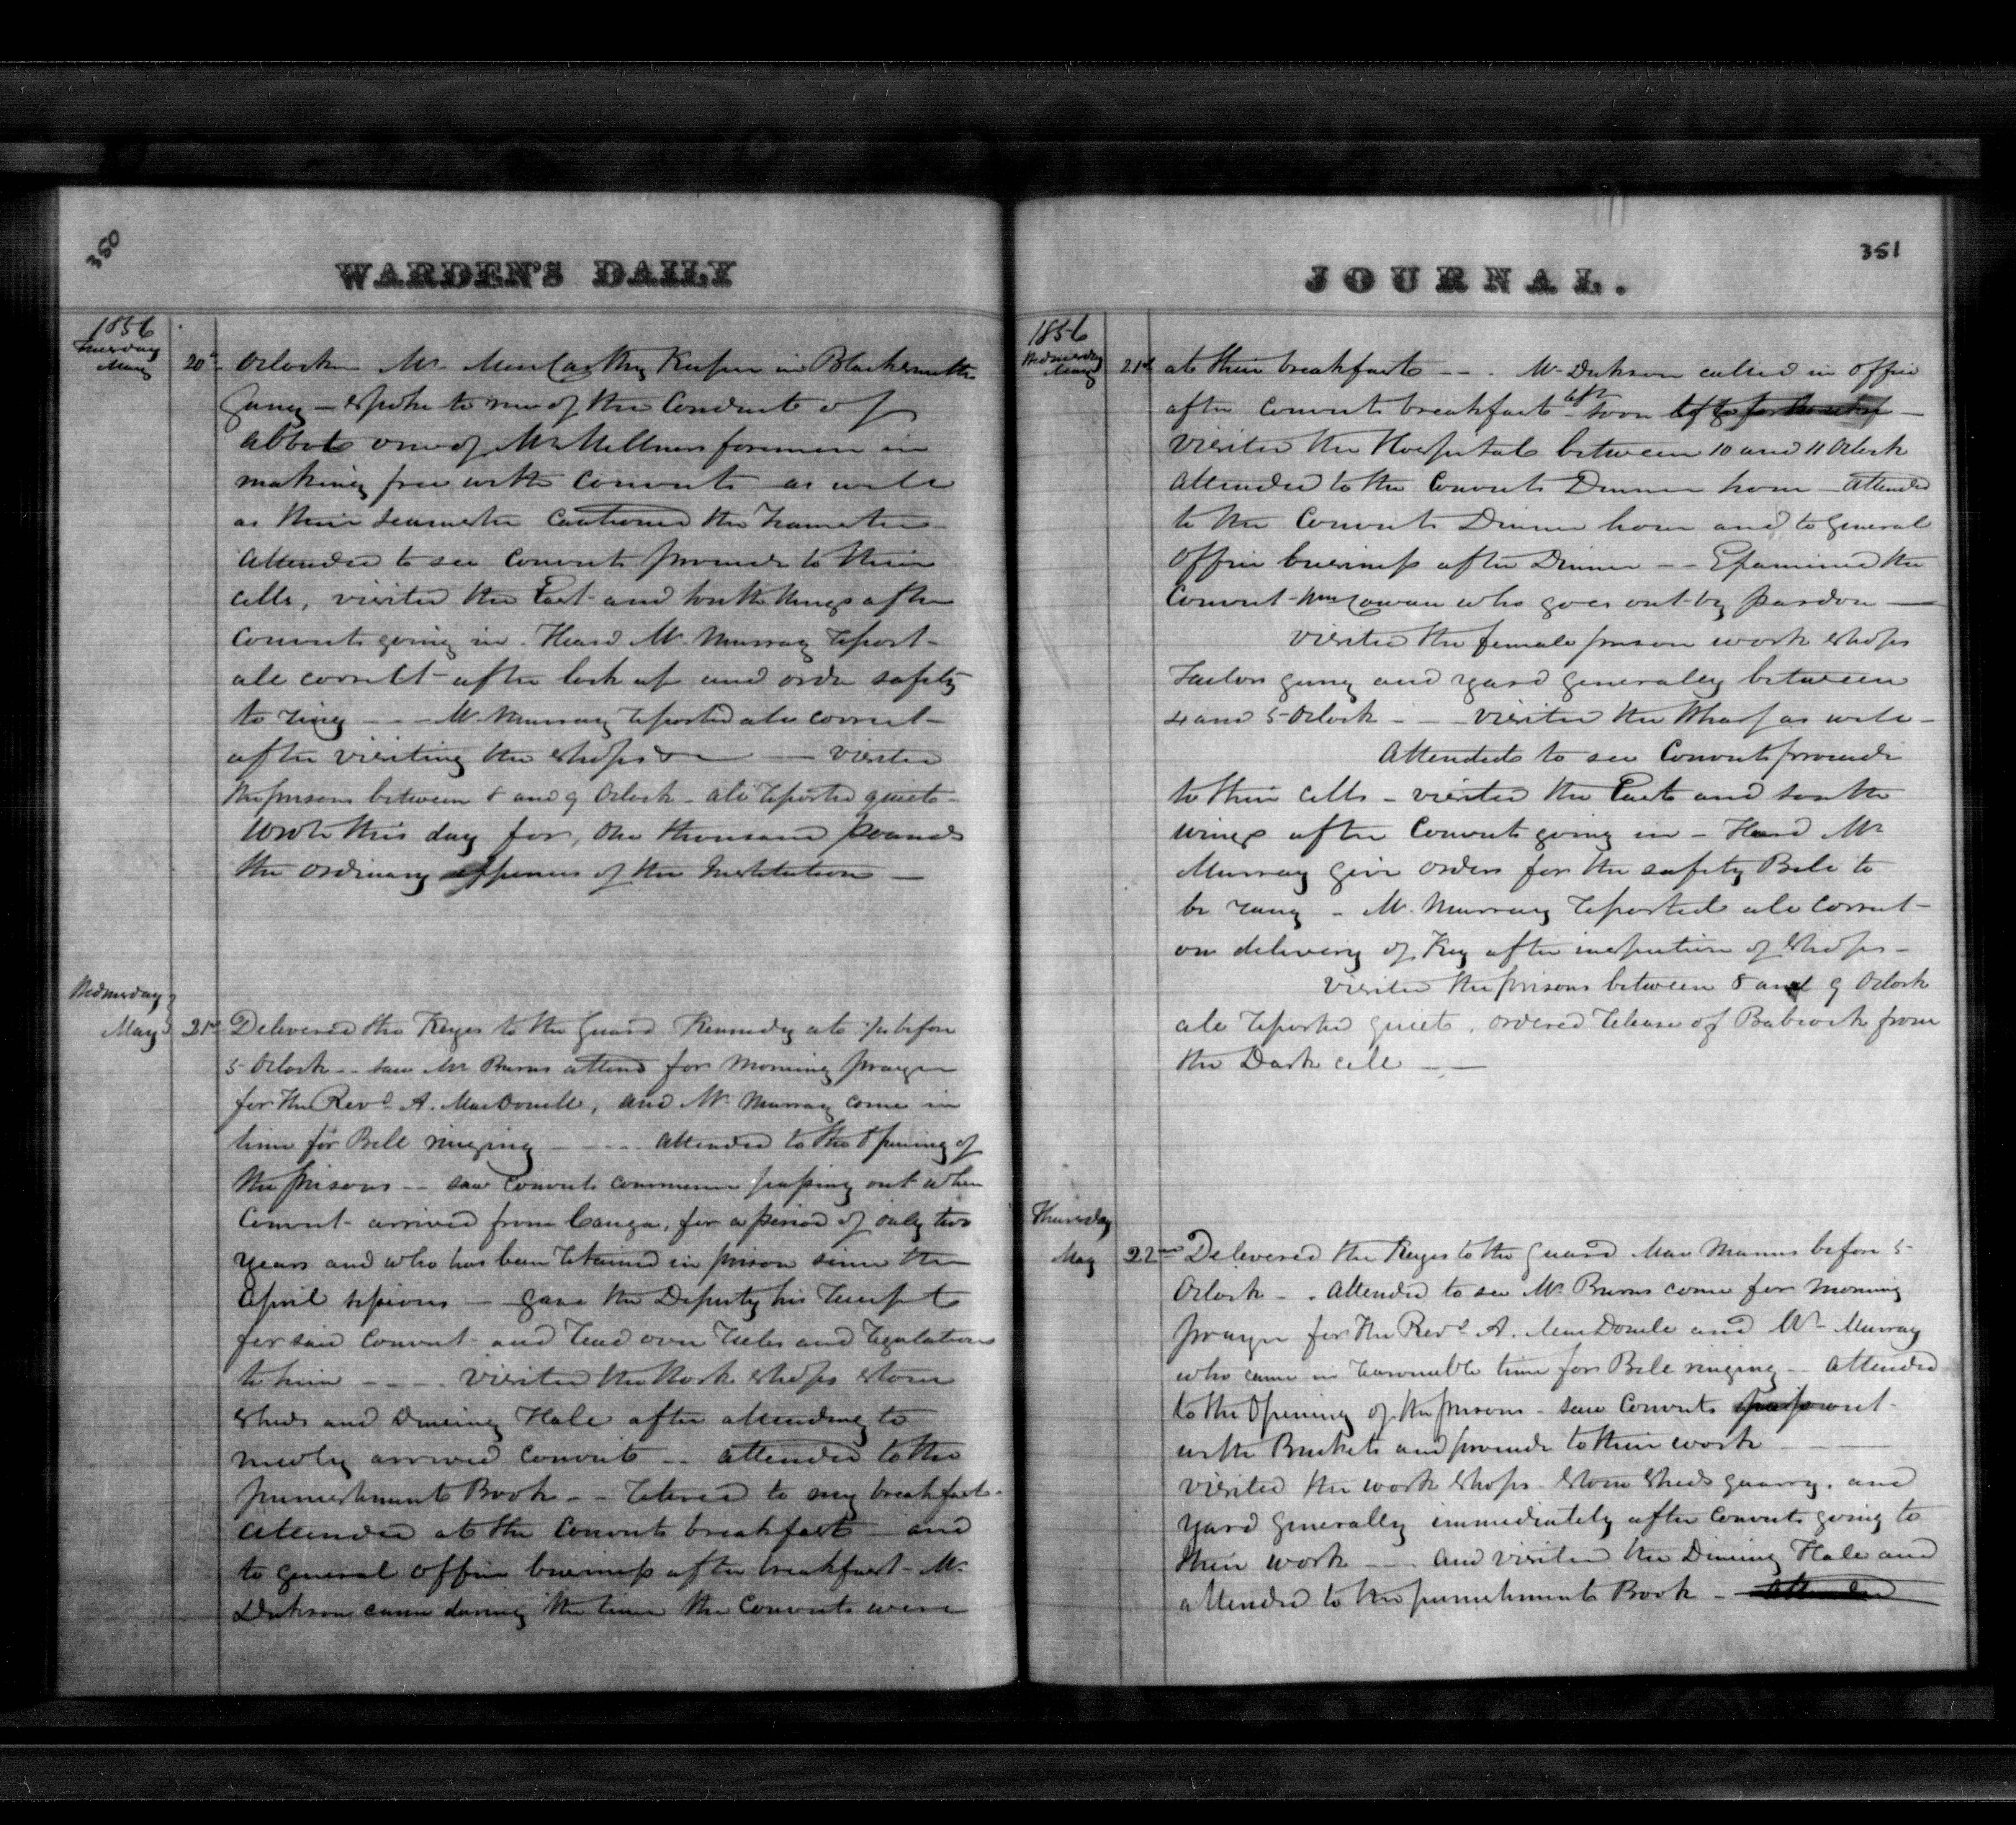 350
WARDEN'S DAILY
1856
Tuesday
May 20th Oclock Mr MacCarthy Keeper in Blacksmith
Gang - spoke to me of the conduct of
Abbot one of Mr Millners foremen in
making free with Convicts as well
as their teamster Cautioned the teamster
Attended to see Convicts proceed to their
cells, visited the East and South Wings after
Convicts going in. Heard Mr Murray report
all correct after lock up and order safety
to ring - - - Mr Murray reported all correct
after visiting the shops - visited
the prisons between 8 and 9 Oclock - all reported quiet -
Wrote this day for, One thousand pounds
the ordinary expenses of the Institution -
Wednesday
May 21st Delivered the Keyes to the Guard Kennedy at before
5 Oclock - - saw Mr Burns attend for Morning prayer
for the Revd A. MacDonell, and Mr Murray come in
time for Bell ringing - - - - Attended to the Opening of
the prisons - - saw Convicts commence passing out when
Convict arrived from Cayuga, for a period of only two
years and who has been retained in prison since the
April sessions - gave the Deputy his receipt
for said Convict and read over rules and regulations
to him - - - . visited the Work shops stone
sheds and Dineing Hall after attending to
newly arrived Convict - - attended to the
punishment Book - - retired to my breakfast -
Attended at the Convicts breakfast - and
to general office business after breakfast - Mr
Dickson came during the time the Convicts were
351
JOURNAL.
1856
Wednesday
May 21st at their breakfast - - . Mr Dickson called in office
after Convicts breakfast soon left
visited the Hospital between 10 and 11 Oclock
Attended to the Convicts Dinner hour - Attended
to the Convicts Dinner hour and to general
office business after Dinner - - Examined the
Convict Wm Cowan who goes out by pardon -
visited the female prison work shops
Tailors gang and yard generally between
4 and 5 Oclock - - visited the Wharf as well -
Attended to see Convicts proceed
to their cells - visited the East and South
wings after Convicts going in - Heard Mr
Murray give orders for the safety Bell to
be rung - Mr Murray reported all correct -
on delivery of Key after inspection of shops -
visited the prisons between 8 and 9 Oclock
all reported quiet. ordered release of Babcock from
the Dark cell - -
Thursday
May 22nd Delivered the Keyes to the Guard MacManus before 5
Oclock - . Attended to see Mr Burns come for Morning
prayer for the Revd A. MacDonell and Mr Murray
who came in reasonable time for Bell ringing - Attended
to the Opening of the prisons - saw Convicts pass out
with Buckets and proceed to their work -
visited the work shops stone sheds quarry, and
yard generally immediately after Convicts going to
their work - - and visited the Dineing Hall and
attended to the punishment Book - Attended